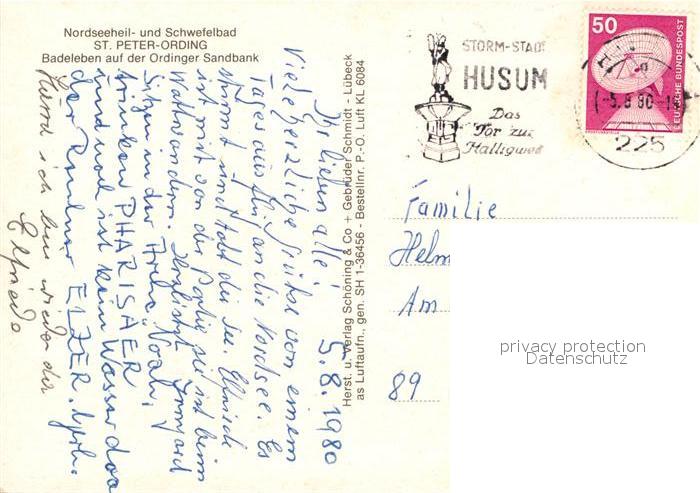 Nordseeheil- und Schwefelbad
ST. PETER-ORDING
Badeleben auf der Ordinger Sandbank
STORM-STADT
HUSUM
Das
Tor zur
Halligwelt
50
DEUTSCHE BUNDESPOST
-5.8.80-1
225
Herst. u. Verlag Schöning & Co + Gebrüder Schmidt - Lübeck
as Luftaufn., gen. SH 1-36456 - Bestellnr. P.-O. Luft KL 6084
5.8.1980
Ihr lieben alle!
Viele herzliche Grüße von einem
Tagesausflug an die Nordsee. Es
stürmt und tobt die See.
ist mit von der Partie sie ist beim
Wattwandern. Herzlichst Irmgard
Sitzen in der "Arche Noah",
trinken PHARISÄER
und noch ist kein Wasser da
der Rentner ELZER.
Hurra ich bin wieder da
Elfriede
Familie
Helm
Am
89
privacy protection
Datenschutz